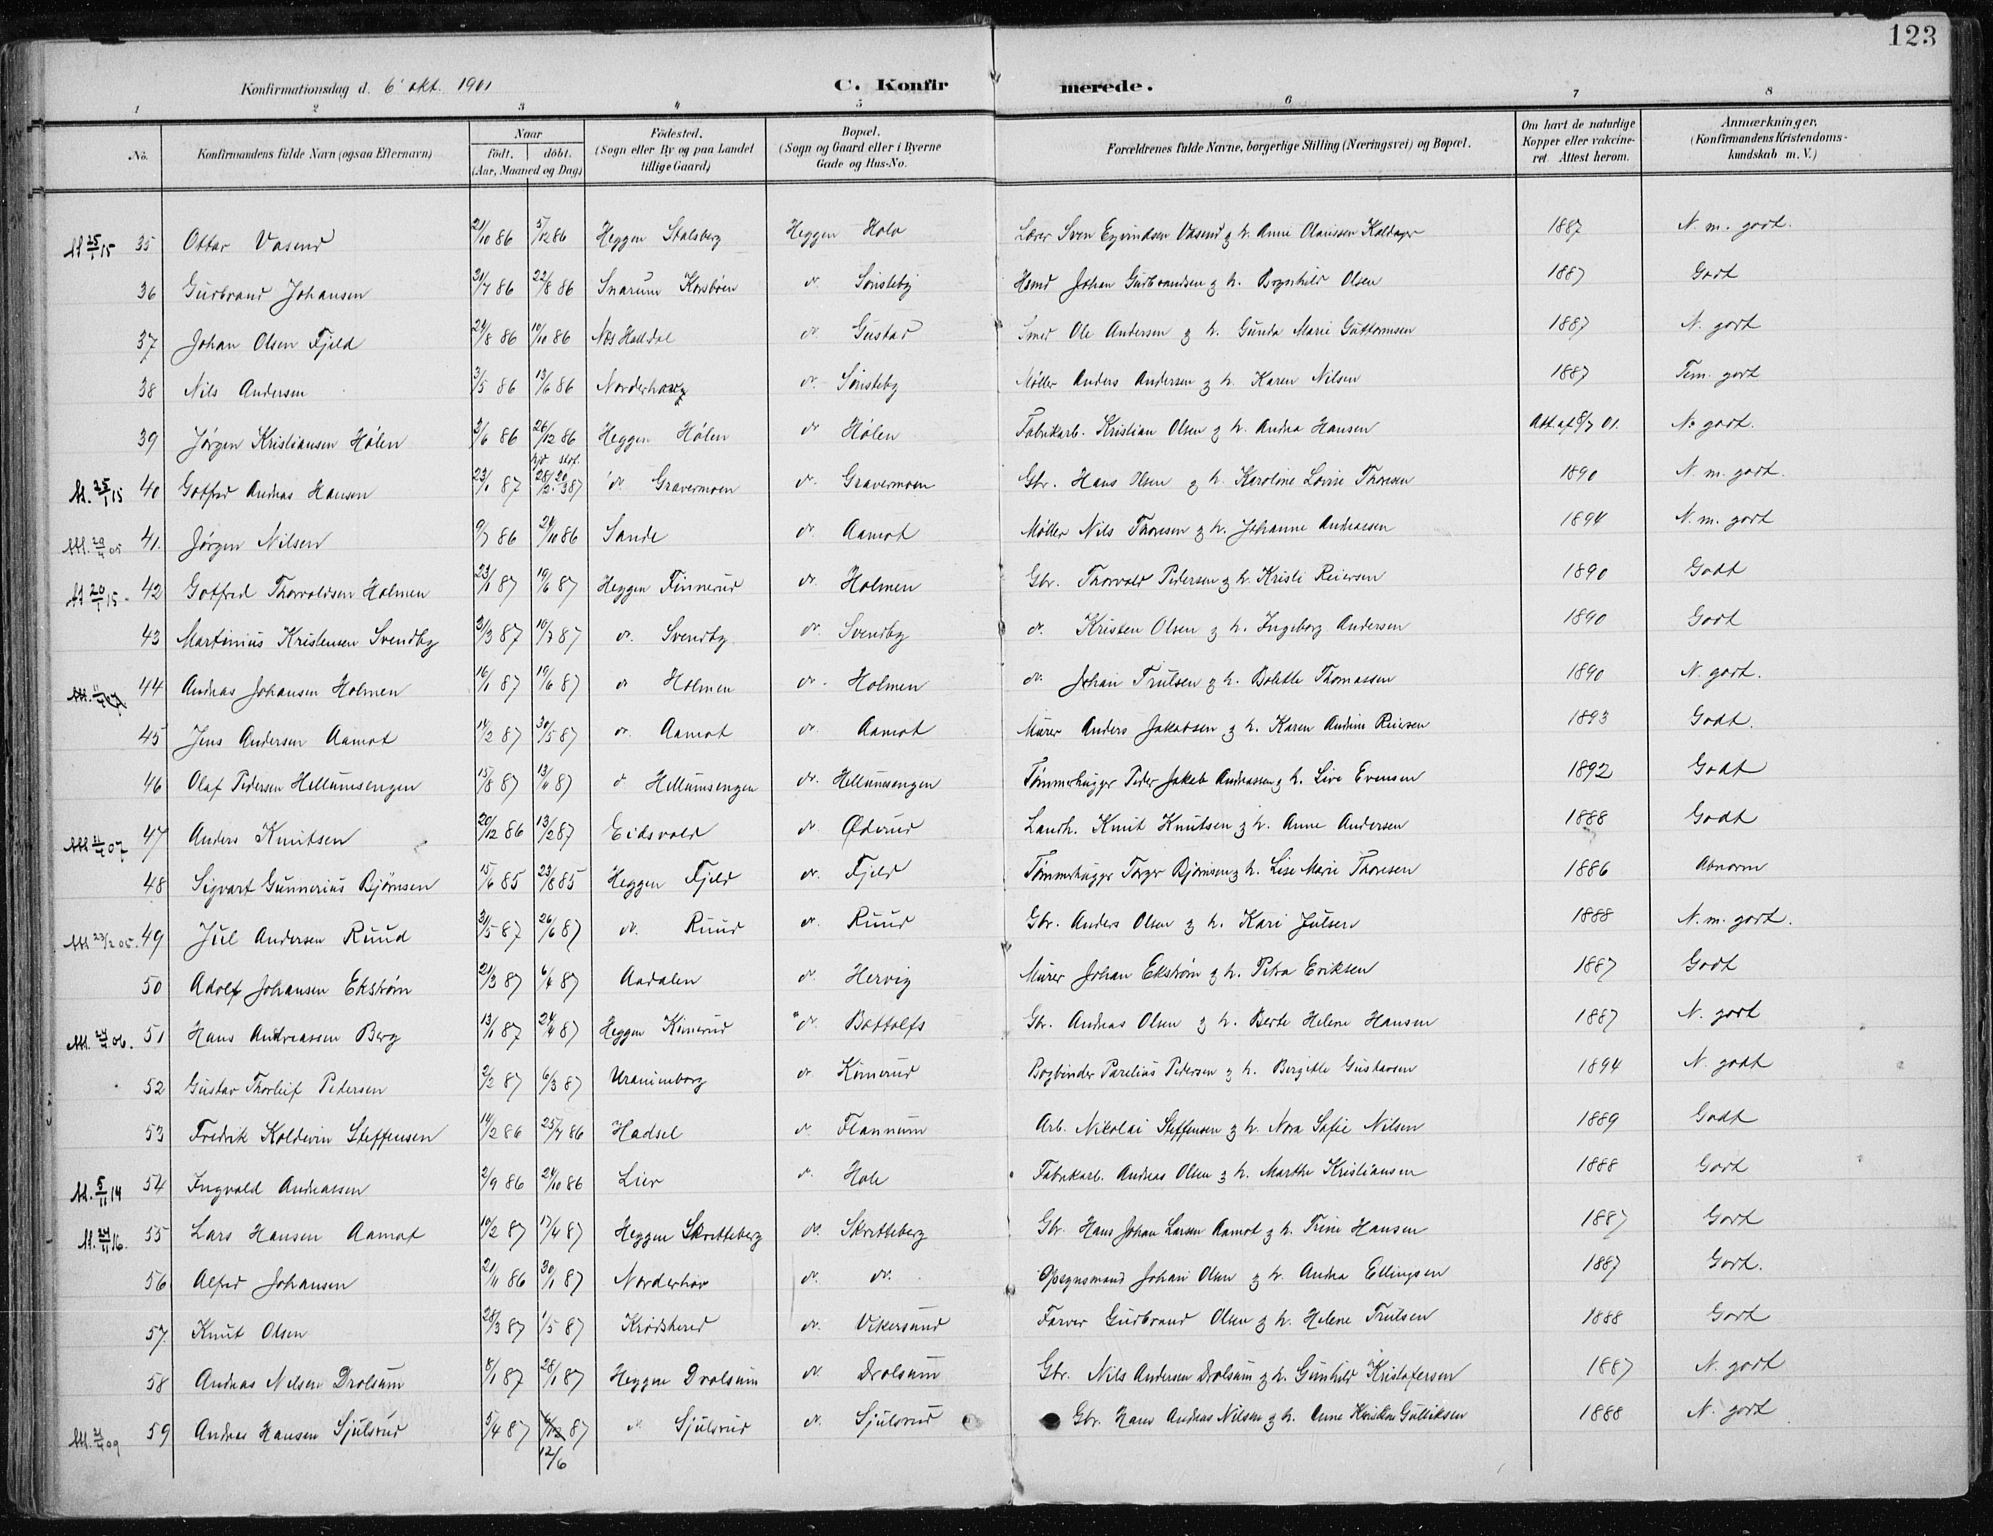 123
Konfirmationsdag d. 6' okt. 1901 C. Konfirmerede.
1 2 3 4 5 6 7 8
No. Konfirmandens fulde Navn (ogsaa Efternavn) Naar født. døbt. (Aar, Maaned og Dag) Fødested. (Sogn eller By og paa Landet tillige Gaard) Bopæl. (Sogn og Gaard eller i Byerne Gade og Hus-No. Forældrenes fulde Navne, borgerlige Stilling (Næringsvei) og Bopæl. Om havt de naturlige Kopper eller vakcineret. Attest herom. Anmærkninger. (Konfirmandens Kristendomskundskab m. V.)
35 Ottar Vasend 21/10 86 5/12 86 Heggen Stalsberg Heggen Hole Lærer Sven Eyvindsen Vasend & h. Anne Olaussen Kaldager 1887 N. m. godt.
36 Gudbrand Johansen 31/7 86 22/8 86 Snarum Korsbøen do Sønsteby Hsmd Johan Gudbrandsen & h. Ragnhild Olsen 1887 Godt
37 Johan Olsen Fjeld 24/8 86 10/10 86 Nes Halldal do Gustad Smed Ole Andersen & h. Gunda Marie Guttormsen 1887 N. godt
38 Nils Andersen 3/5 86 13/6 86 Norderhov do. Sønsteby Møller Anders Andersen & h. Karen Nilsen 1887 Tem. godt
39 Jørgen Kristiansen Hølen 3/6 86 26/12 86 Heggen Hølen do Hølen Fabrikarb. Kristian Olsen & h. Andrea Hansen Att. af 8/7 01. N. godt.
M. 25/1 15 40 Gotfred Andreas Hansen 23/1 87 28/2 20/3 87 do Gravermoen do. Gravermoen Gbr. Hans Olsen & h. Karoline Lovise Thoresen 1890 N. m. godt.
41. Jørgen Nilsen 9/7 86 24/10 86 Sande do. Aamot Møller Nils Thoresen & h. Johanne Andreasen 1894 N. m. godt
M 20/1 15 42 Gotfred Thorvaldsen Holmen 23/1 87 19/6 87 Heggen Finnerud do. Holmen Gbr. Thorvald Pedersen & h. Kristi Reiersen 1890 Godt
43 Martinius Kristensen Svendby 31/3 87 10/7 87 do. Svendby do. Svendby do. Kristen Olsen & h. Ingeborg Andersen 1890 Godt
44 Andreas Johansen Holmen 16/1 87 19/6 87 do Holmen do. Holmen do. Johan Trulsen & h. Bolette Thomassen 1890 N. godt.
45 Jens Andersen Aamot 14/2 87 30/5 87 do. Aamot do. Aamot Murer Anders Jakobsen & h. Karen Andrine Reiersen 1893 Godt.
46 Olaf Pedersen Hellumsengen 15/8 87 13/11 87 do Hellumsengen do. Hellumsengen Tømmerhugger Peder Jakob Andreassen & h. Live Evensen 1892 Godt
47 Anders Knutsen 20/12 86 13/2 87 Eidsvold do Øderud Landh. Knut Knutsen & h. Anne Andersen 1888 Godt
48 Sigvart Gunnerius Bjørnsen 15/6 85 23/8 85 Heggen Fjeld do. Fjeld Tømmerhugger Torger Bjørnsen & h. Lise Marie Thoresen 1886 Abnorm
M 23/2 05. 49 Juel Andersen Ruud 31/5 87 26/6 87 do. Ruud do. Ruud Gbr. Anders Olsen & h. Kari Juelsen 1888 N. m. godt.
50 Adolf Johansen Ekstrøm 21/3 87 6/4 87 Aadalen do. Hervig Murer Johan Ekstrøm & h. Petra Eriksen 1887 Godt
51 Hans Andreassen Berg 13/1 87 24/4 87 Heggen Kimerud do. Bottolfs Gbr. Andreas Olsen & h. Berte Helene Hansen 1887 N. godt
52 Gustav Thorleif Pedersen 2/2 87 6/3 87 Uranienborg do Kimerud Bogbinder Parelius Pedersen & h. Bergitte Gustavsen 1894 N. godt
53 Fredrik Koldevin Steffensen 14/2 86 25/7 86 Hadsel do. Flannum Arb. Nikolai Steffensen & h. Nora Sofie Nilsen 1889 Godt
M. 5/11 14 54 Ingvald Andreassen 2/9 86 24/10 86 Lier do. Hole Fabrikarb. Andreas Olsen & h. Marthe Kristiansen 1888 Godt
M. 24/11 16. 55 Lars Hansen Aamot 10/2 87 17/4 87 Heggen Skretteberg do. Skretteberg Gbr. Hans Johan Larsen Aamot & h. Trine Hansen 1887 Godt
56 Alfred Johansen 21/11 86 30/1 87 Norderhov do. do. Opsynsmand Johan Olsen & h. Andrea Ellingsen 1887 Godt.
57. Knut Olsen 28/3 87 1/5 87 Krødsherred do. Vikersund Farver Gudbrand Olsen & h. Helene Trulsen 1888 Godt
58 Andreas Nilsen Drolsum 8/1 87 28/1 87 Heggen Drolsum do. Drolsum Gbr. Nils Andersen Drolsum & h. Gunhild Kristofersen 1887 N. godt
59 Andreas Hansen Sjulsrud 5/4 87 87 12/6 do. Sjulsrud do. Sjulsrud Gbr. Hans Andreas Nilsen & h. Anne Gulliksen 1888 N. godt